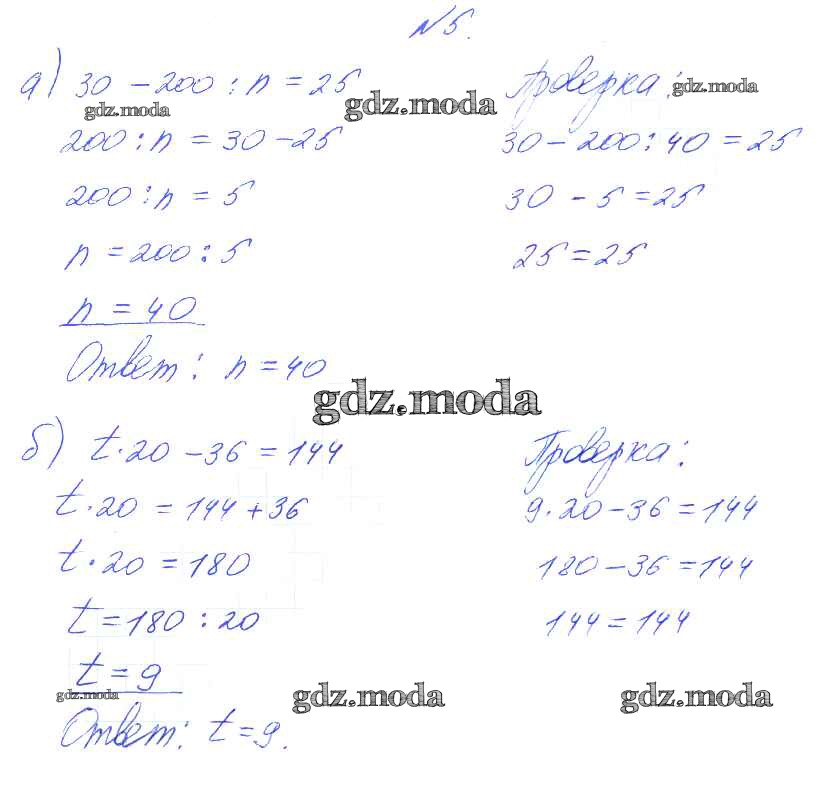 №5.
а) 30 - 200 : n = 25
gdz.moda
200 : n = 30 - 25
200 : n = 5
n = 200 : 5
n = 40
Ответ: n = 40
gdz.moda
Проверка:
gdz.moda
30 - 200 : 40 = 25
30 - 5 = 25
25 = 25
gdz.moda
б) t · 20 - 36 = 144
t · 20 = 144 + 36
t · 20 = 180
t = 180 : 20
t = 9
gdz.moda
Ответ: t = 9.
Проверка:
9 · 20 - 36 = 144
180 - 36 = 144
144 = 144
gdz.moda
gdz.moda